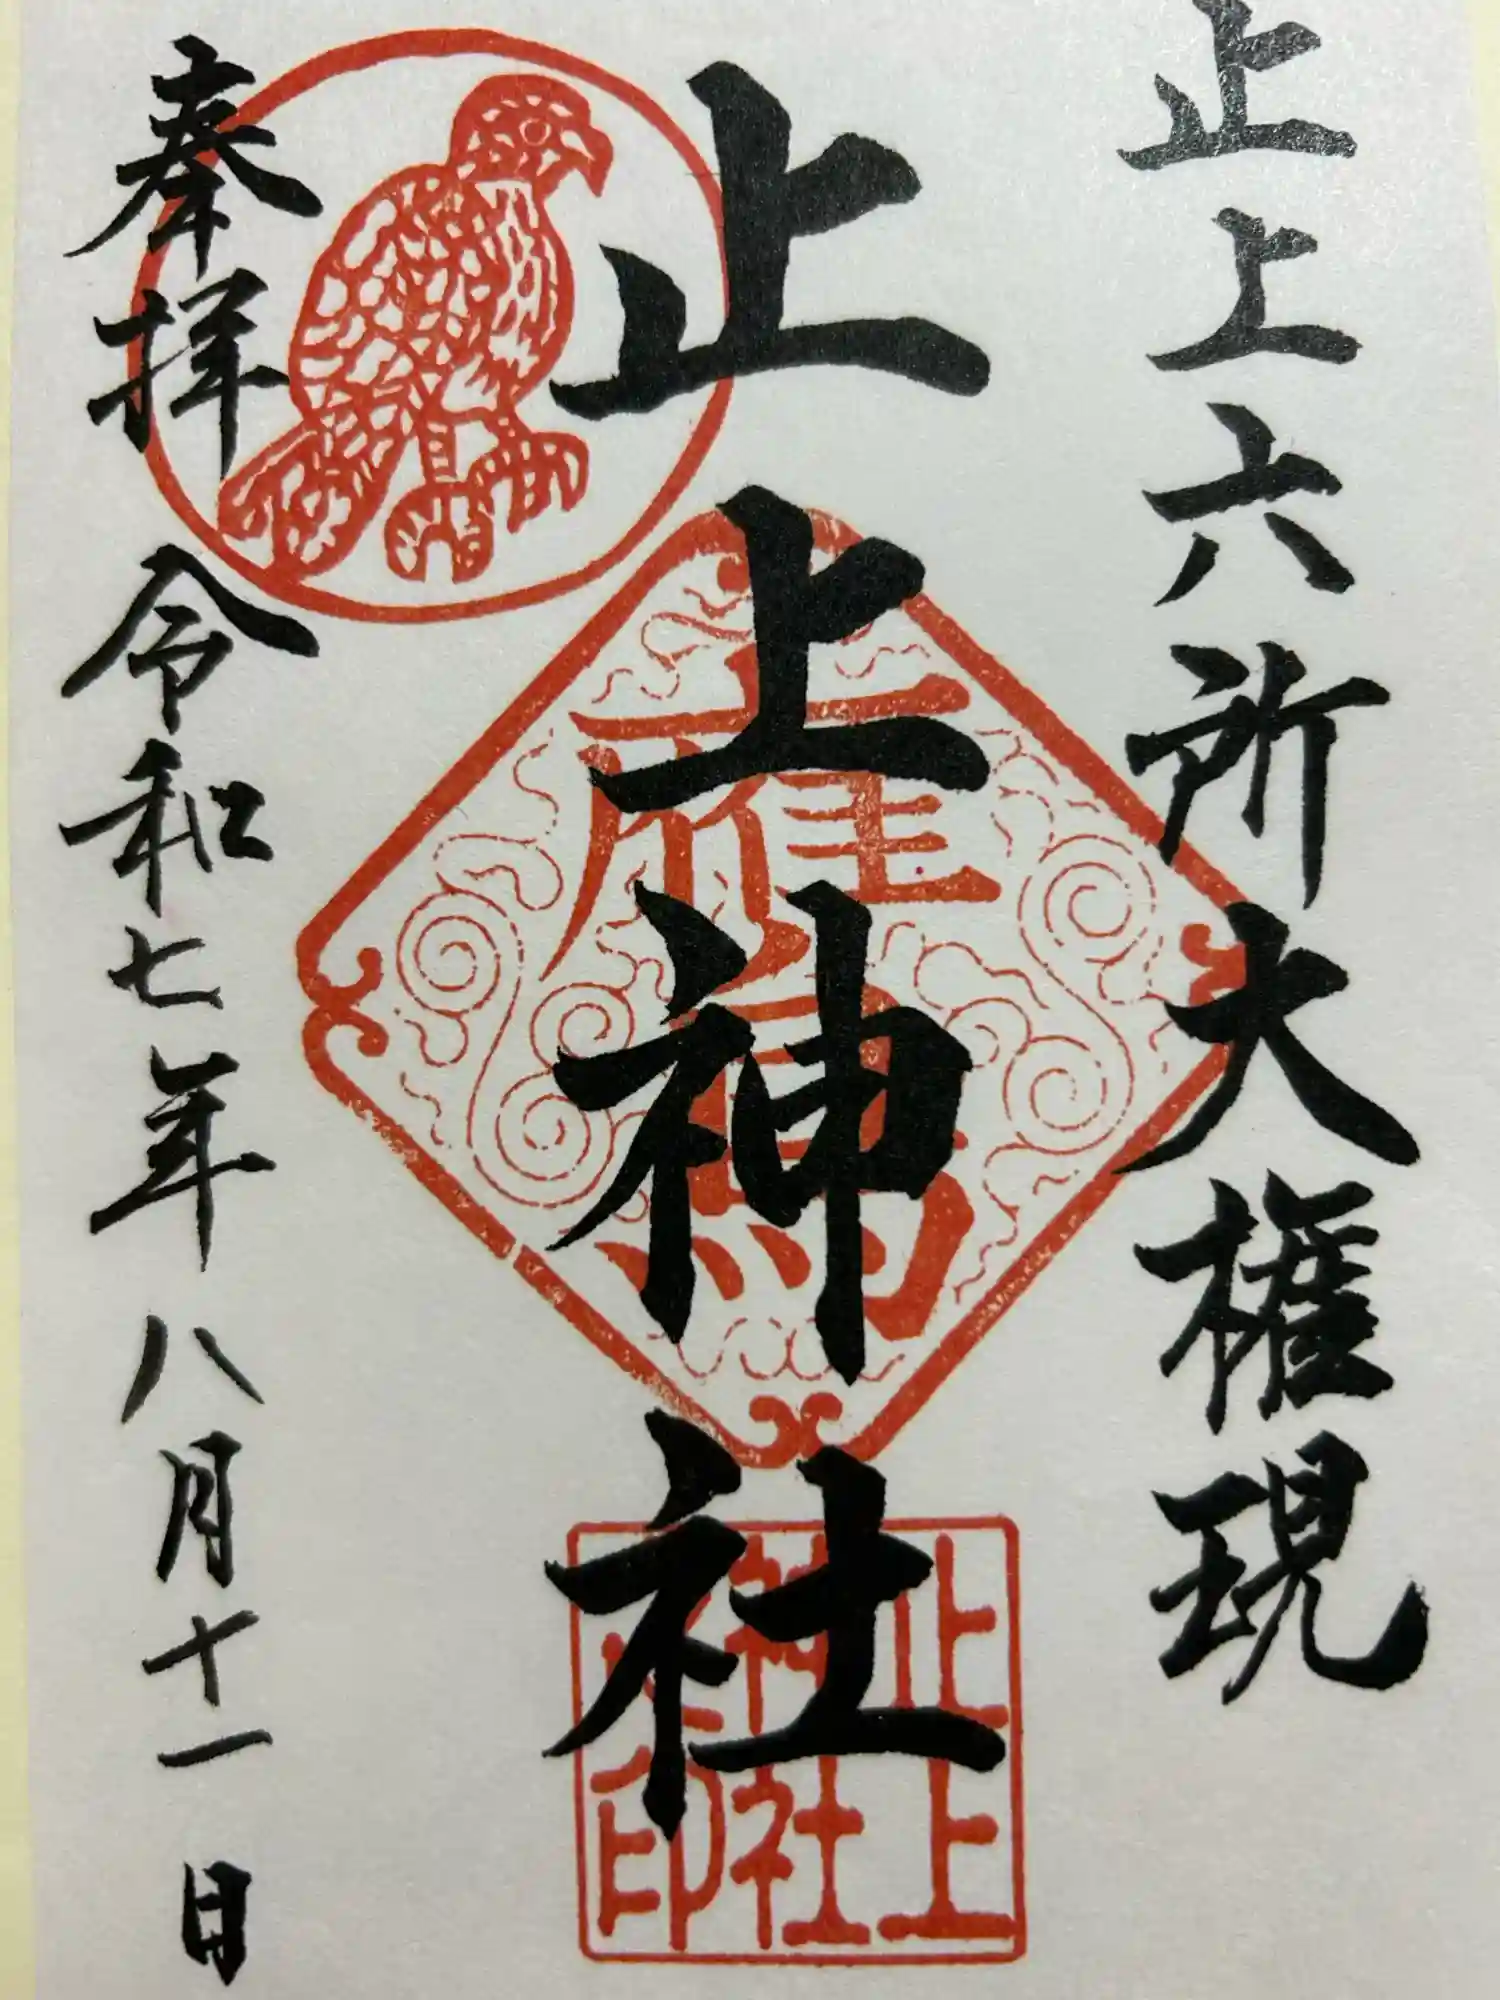 止上六所大権現
止上神社
奉拝 令和七年八月十一日
鷹
止上
神社
印